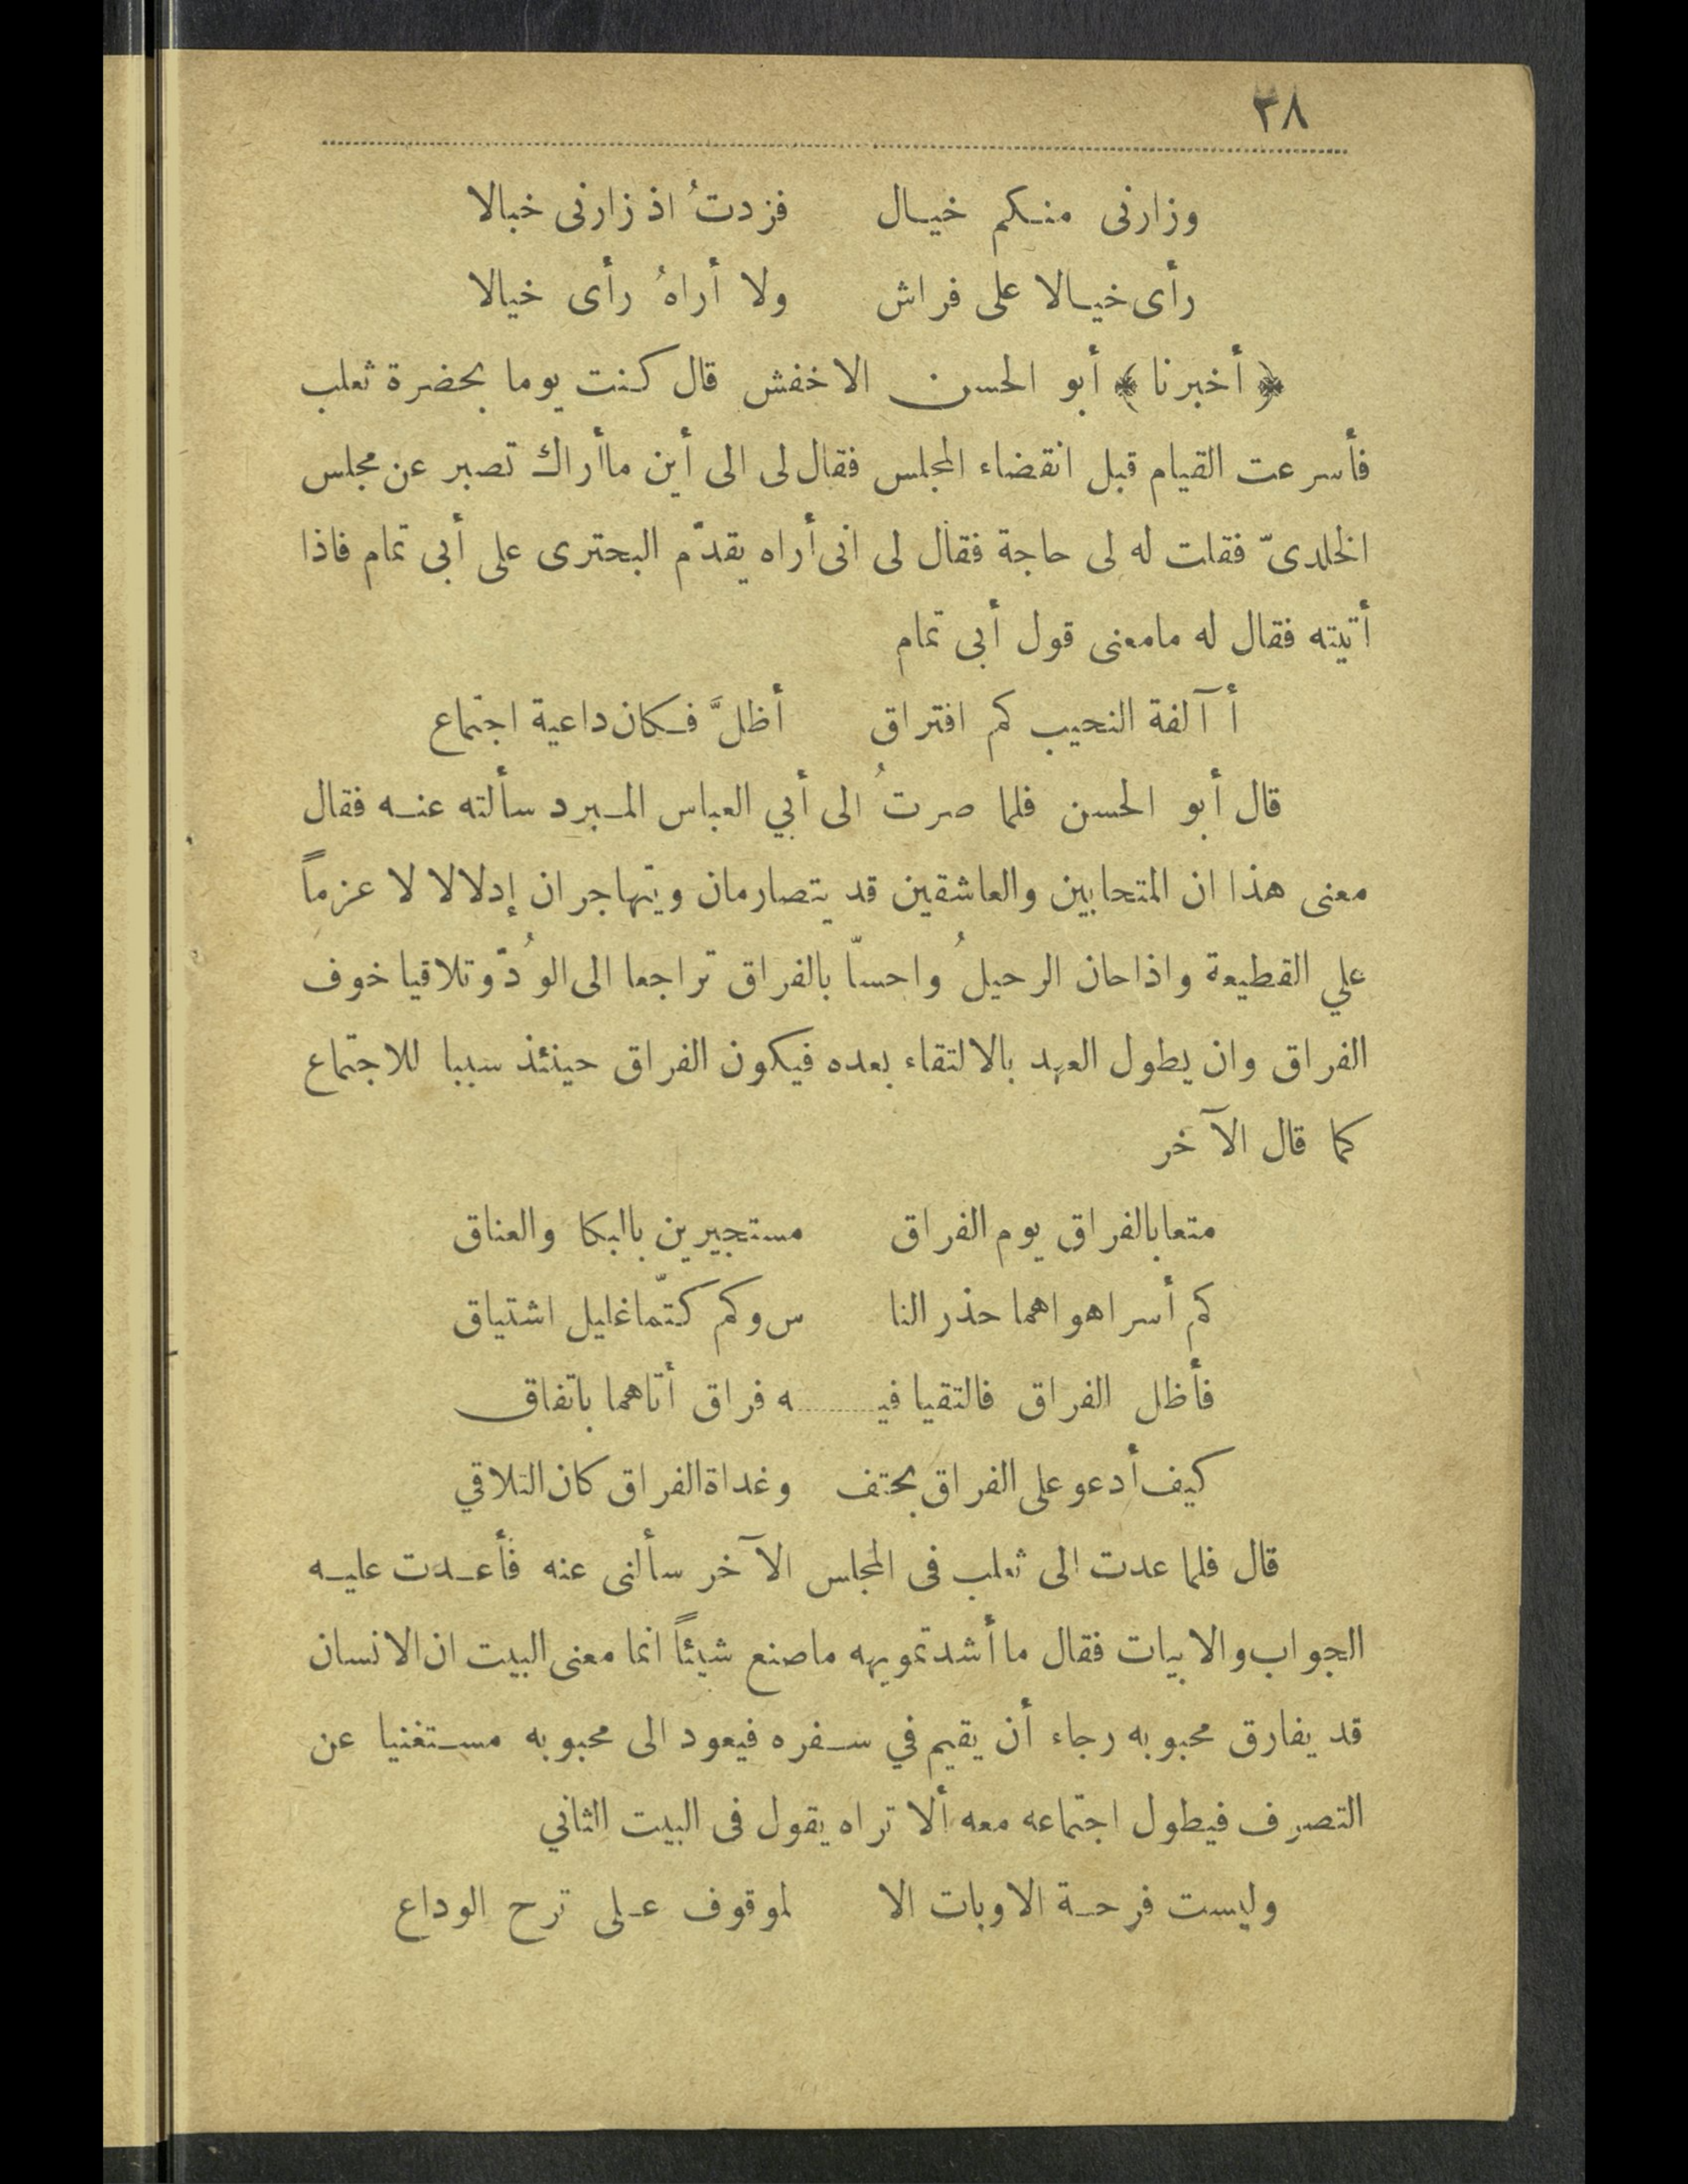 ٣٨
وزارنى منكم خيال فزدتُ اذ زارنى خبالا
رأى خيالا على فراش ولا أراهُ رأى خيالا
﴿أخبرنا﴾ أبو الحسن الاخفش قال كنت يوما بحضرة ثعلب
فأسرعت القيام قبل انقضاء المجلس فقال لى الى أين ماأراك تصبر عن مجلس
الخلدىّ فقلت له لى حاجة فقال لى انى أراه يقدّم البحترى على أبى تمام فاذا
أتيته فقال له مامعنى قول أبى تمام
أآلفة النحيب كم افتراق أظلَّ فكان داعية اجتماع
قال أبو الحسن فلما صرتُ الى أبي العباس المبرد سألته عنه فقال
معنى هذا ان المتحابين والعاشقين قد يتصارمان ويتهاجران إدلالا لا عزماً
علي القطيعة واذاحان الرحيلُ واحسّا بالفراق تراجعا الى الوُدّ وتلاقيا خوف
الفراق وان يطول العهد بالالتقاء بعده فيكون الفراق حينئذ سببا للاجتماع
كما قال الآخر
متعابالفراق يوم الفراق مستجيرين بالبكا والعناق
كم أسراهواهما حذر النا س وكم كتّماغليل اشتياق
فأظل الفراق فالتقيا فيـ........ـه فراق أتاهما باتفاق
كيف أدعو على الفراق بحتف وغداة الفراق كان التلاقي
قال فلما عدت الى ثعلب فى المجلس الآخر سألنى عنه فأعدت عليه
الجواب والابيات فقال ما أشد تمويهه ماصنع شيئاً انما معنى البيت ان الانسان
قد يفارق محبوبه رجاء أن يقيم في سفره فيعود الى محبوبه مستغنيا عن
التصرف فيطول اجتماعه معه ألا تراه يقول فى البيت الثاني
وليست فرحة الاوبات الا لموقوف على ترح الوداع